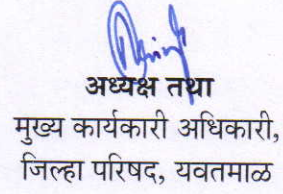 अध्यक्ष तथा
मुख्य कार्यकारी अधिकारी,
जिल्हा परिषद, यवतमाळ